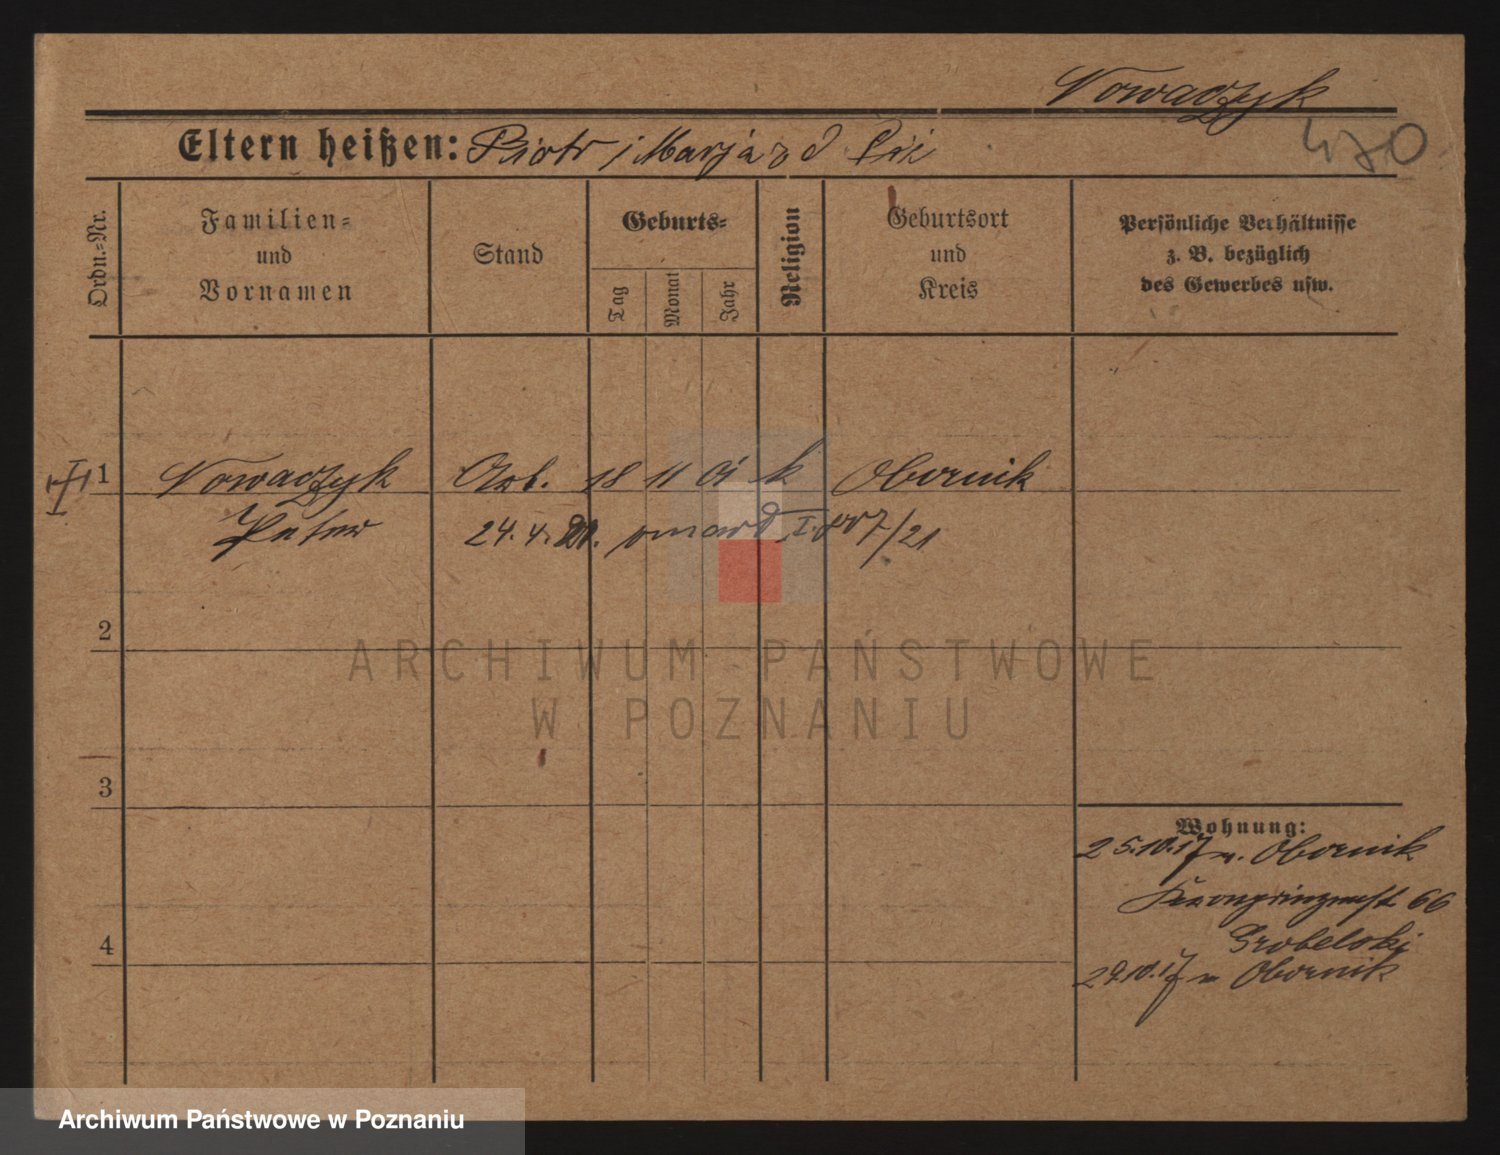 Nowaczyk
470
Eltern heißen: Piotr i Marja z d
Ordn.-Nr.
Familien- und Vornamen
Stand
Geburts-
Tag
Monat
Jahr
Religion
Geburtsort und Kreis
Persönliche Verhältnisse z. B. bezüglich des Gewerbes usw.
1 Nowaczyk Arb. 18 11 01 k Obornik
Peter 24. 4. 21.
2
3
4
Wohnung:
25.10.17 v. Obornik
Kronprinzenst 66
Grobelski
29.10.17 n Obornik
ARCHIWUM PAŃSTWOWE
W POZNANIU
Archiwum Państwowe w Poznaniu